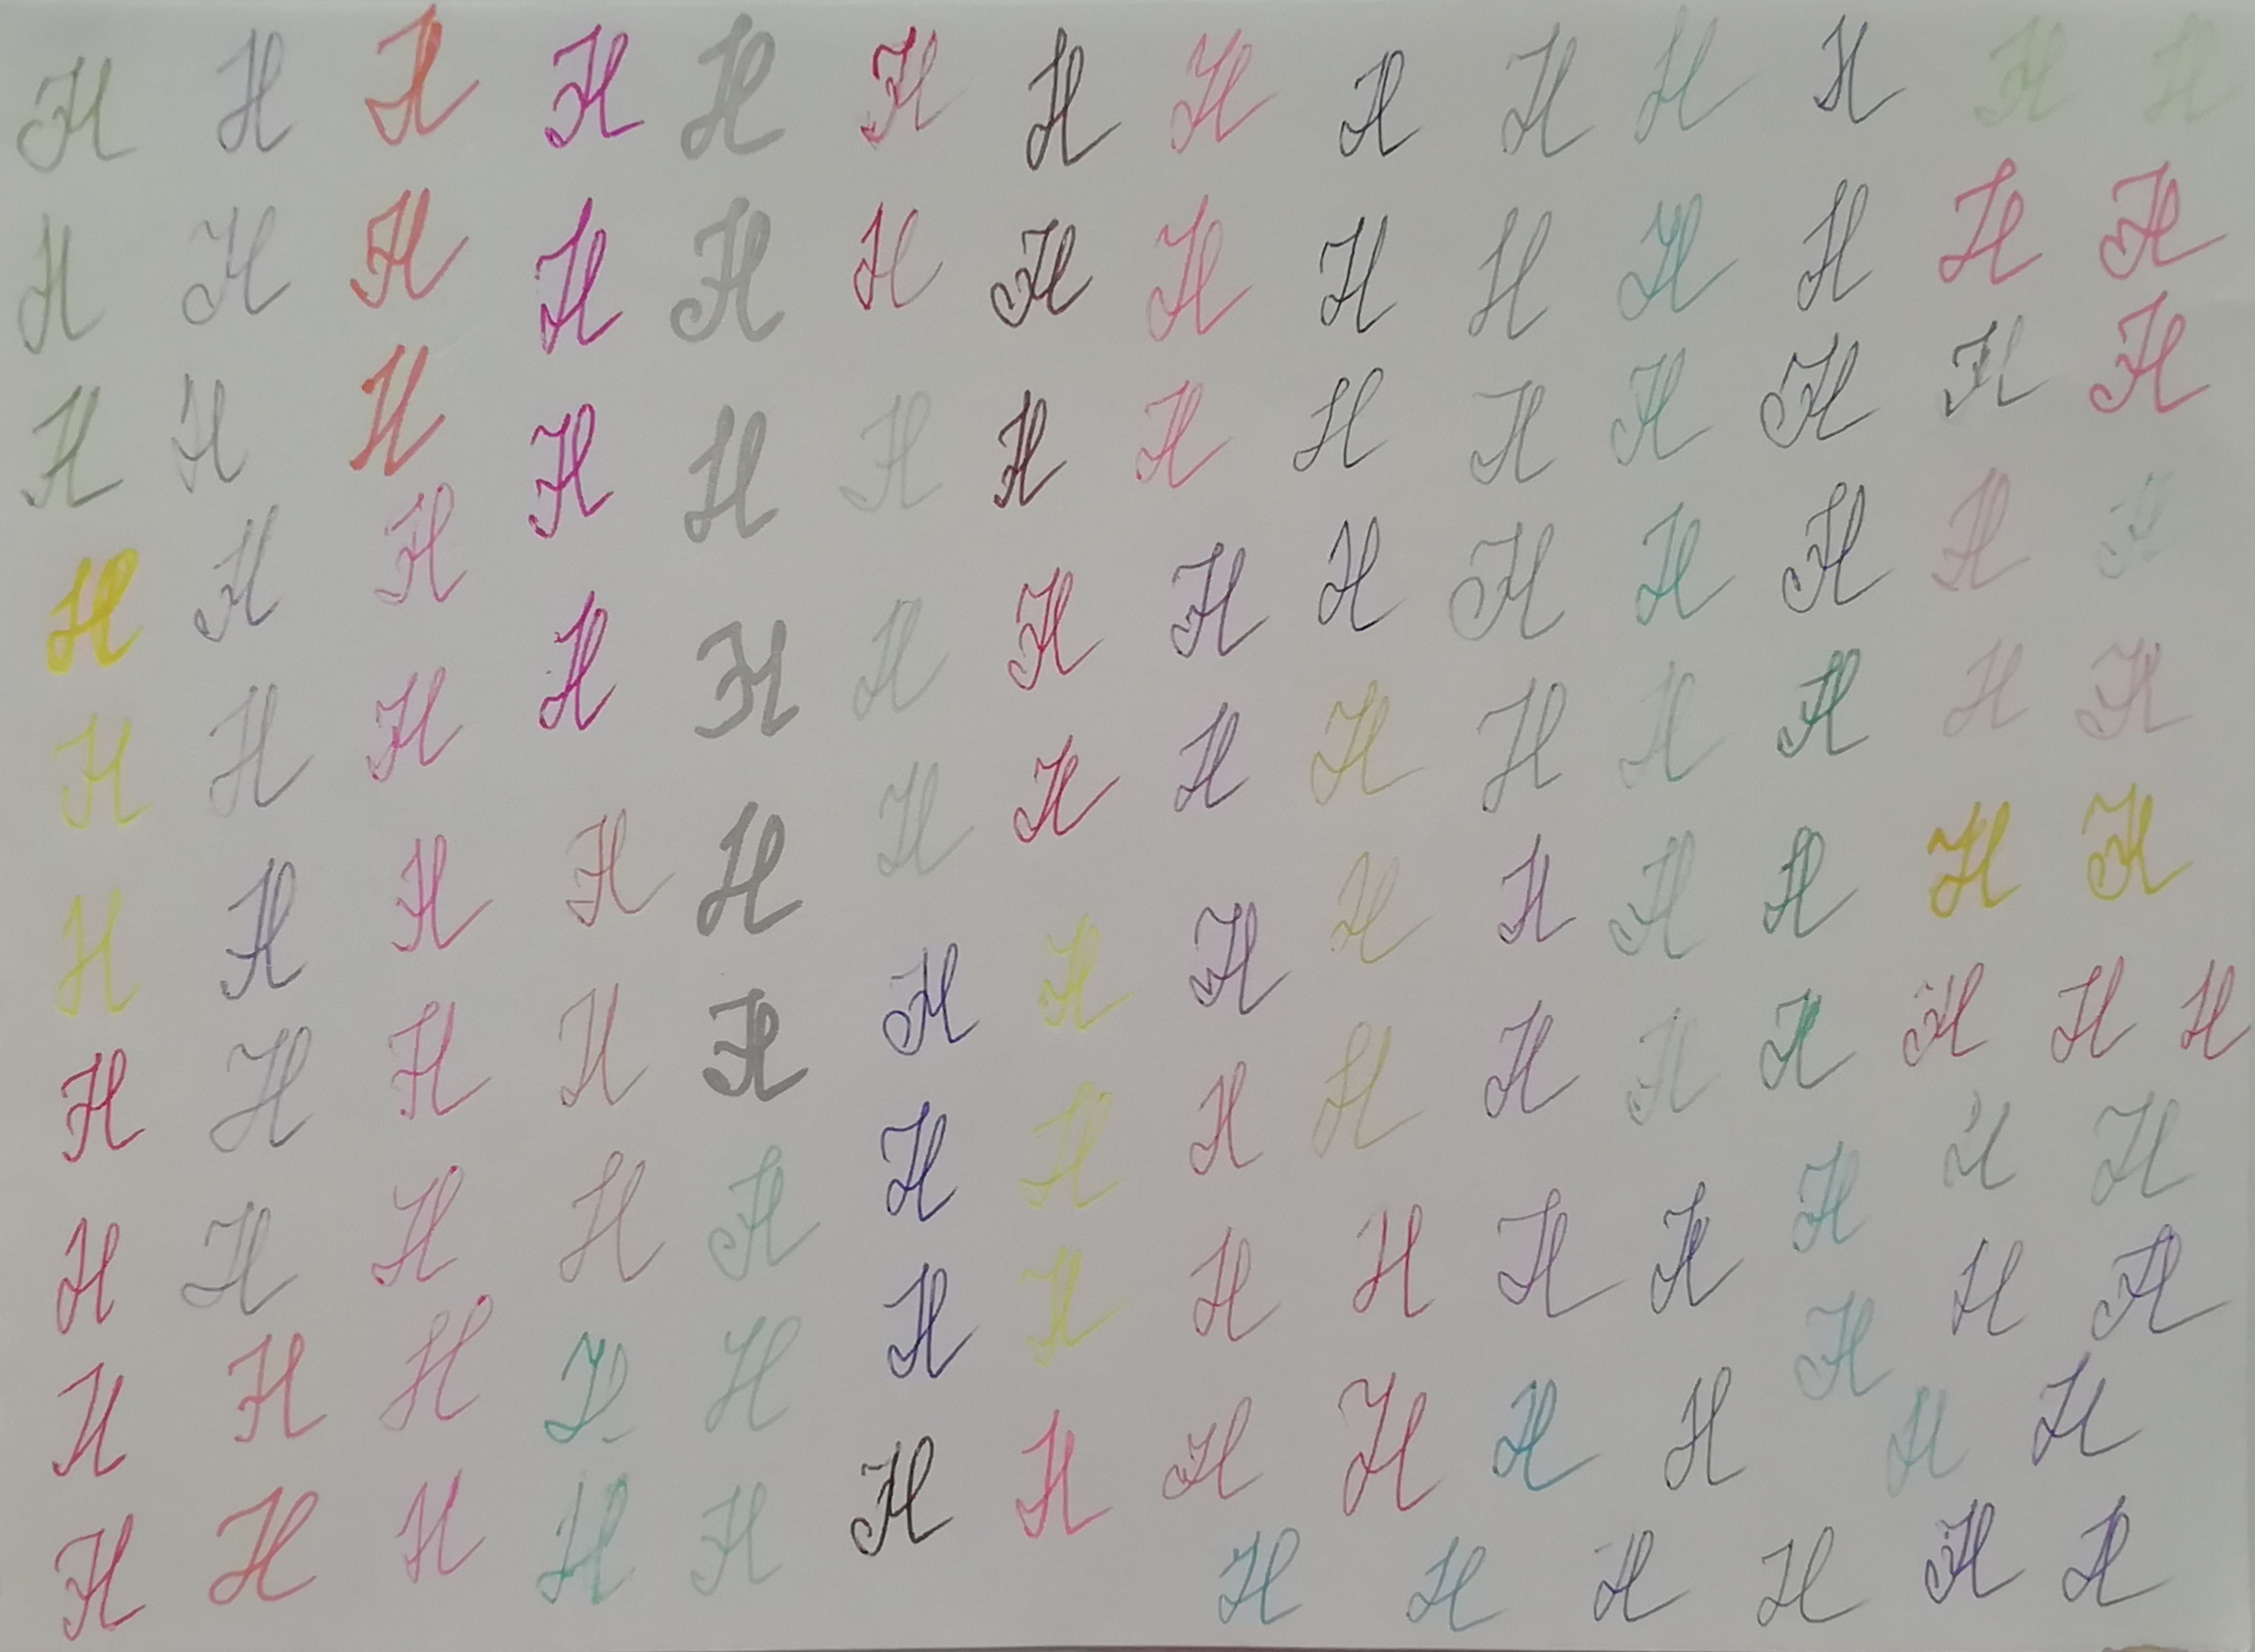 H H H H H H H H H H H H H H
H H H H H H H H H H H H H H
H H H H H H H H H H H H H H
H H H H H H H H H H H H H H
H H H H H H H H H H H H H H
H H H H H H H H H H H H H H
H H H H H H H H H H H H H H H
H H H H H H H H H H H H H H
H H H H H H H H H H H H H H
H H H H H H H H H H H